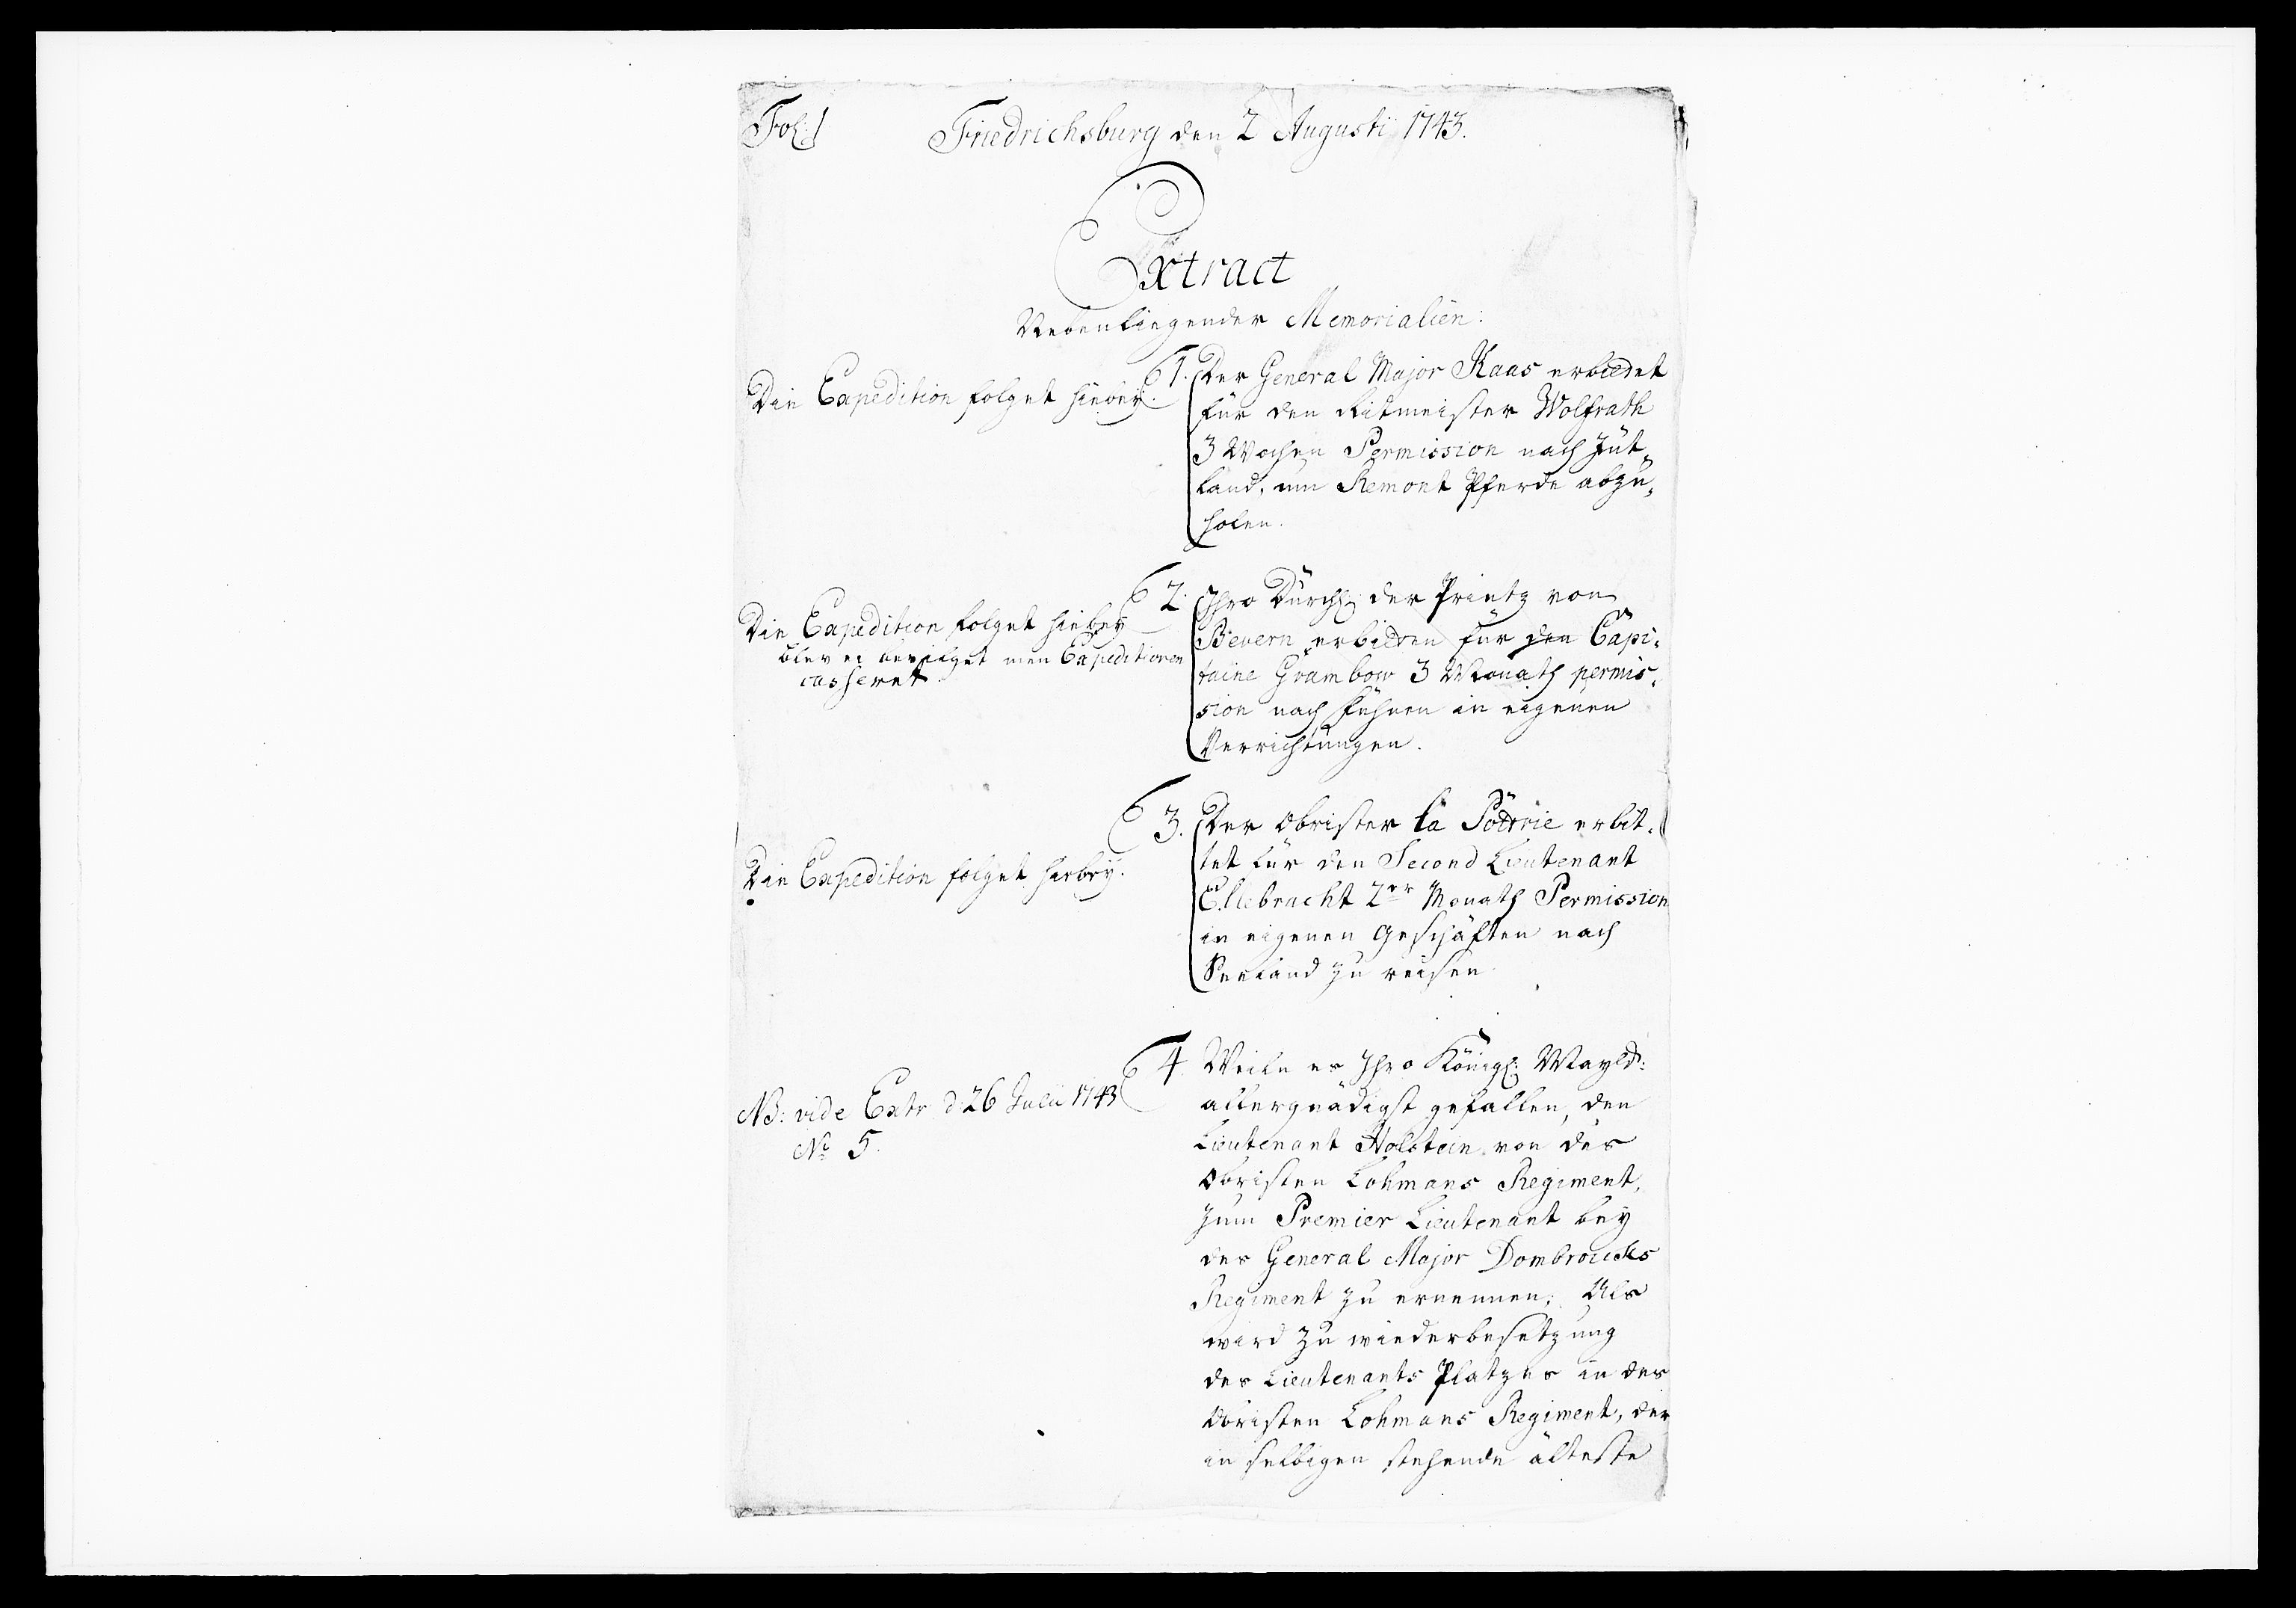 Fol: 1
Friedrichsburg den 2 Augusti 1743.
Extract
Nebenliegender Memorialien:
Die Expedition folget hiebey.
1. Der General Major Kaas erbiedet
für den Ritmeister Wolfrath
3 Wochen Permission nach Jüt-
land, um Remont Pferde abzu-
holen.
Die Expedition folget hiebey
blev ei bevilget men Expeditionen
casseret
2. Ihro Durchl: der Printz von
Bevern erbieten für den Capi-
taine Grambow 3 Monath permis-
sion nach Fühnen in eigenen
Verrichtungen.
Die Expedition folget hierbey.
3. Der Obrister la Pottrie erbit-
tet für den Second Lieutenant
Ellebracht 2er Monath Permission
in eigenen Geschäften nach
Seeland zu reisen
NB: vide Extr d: 26 Julii 1743
No 5.
4. Weiln es Ihro Königl: Mayst:
allergnädigst gefallen, den
Lieutenant Holstein von des
Obristen Lohmans Regiment,
zum Premier Lieutenant bey
des General Major Dombroucks
Regiment zu ernennen; Als
wird zu wiederbesetzung
des Lieutenants Platzes in des
Obristen Lohmans Regiment, der
in selbigen stehende älteste